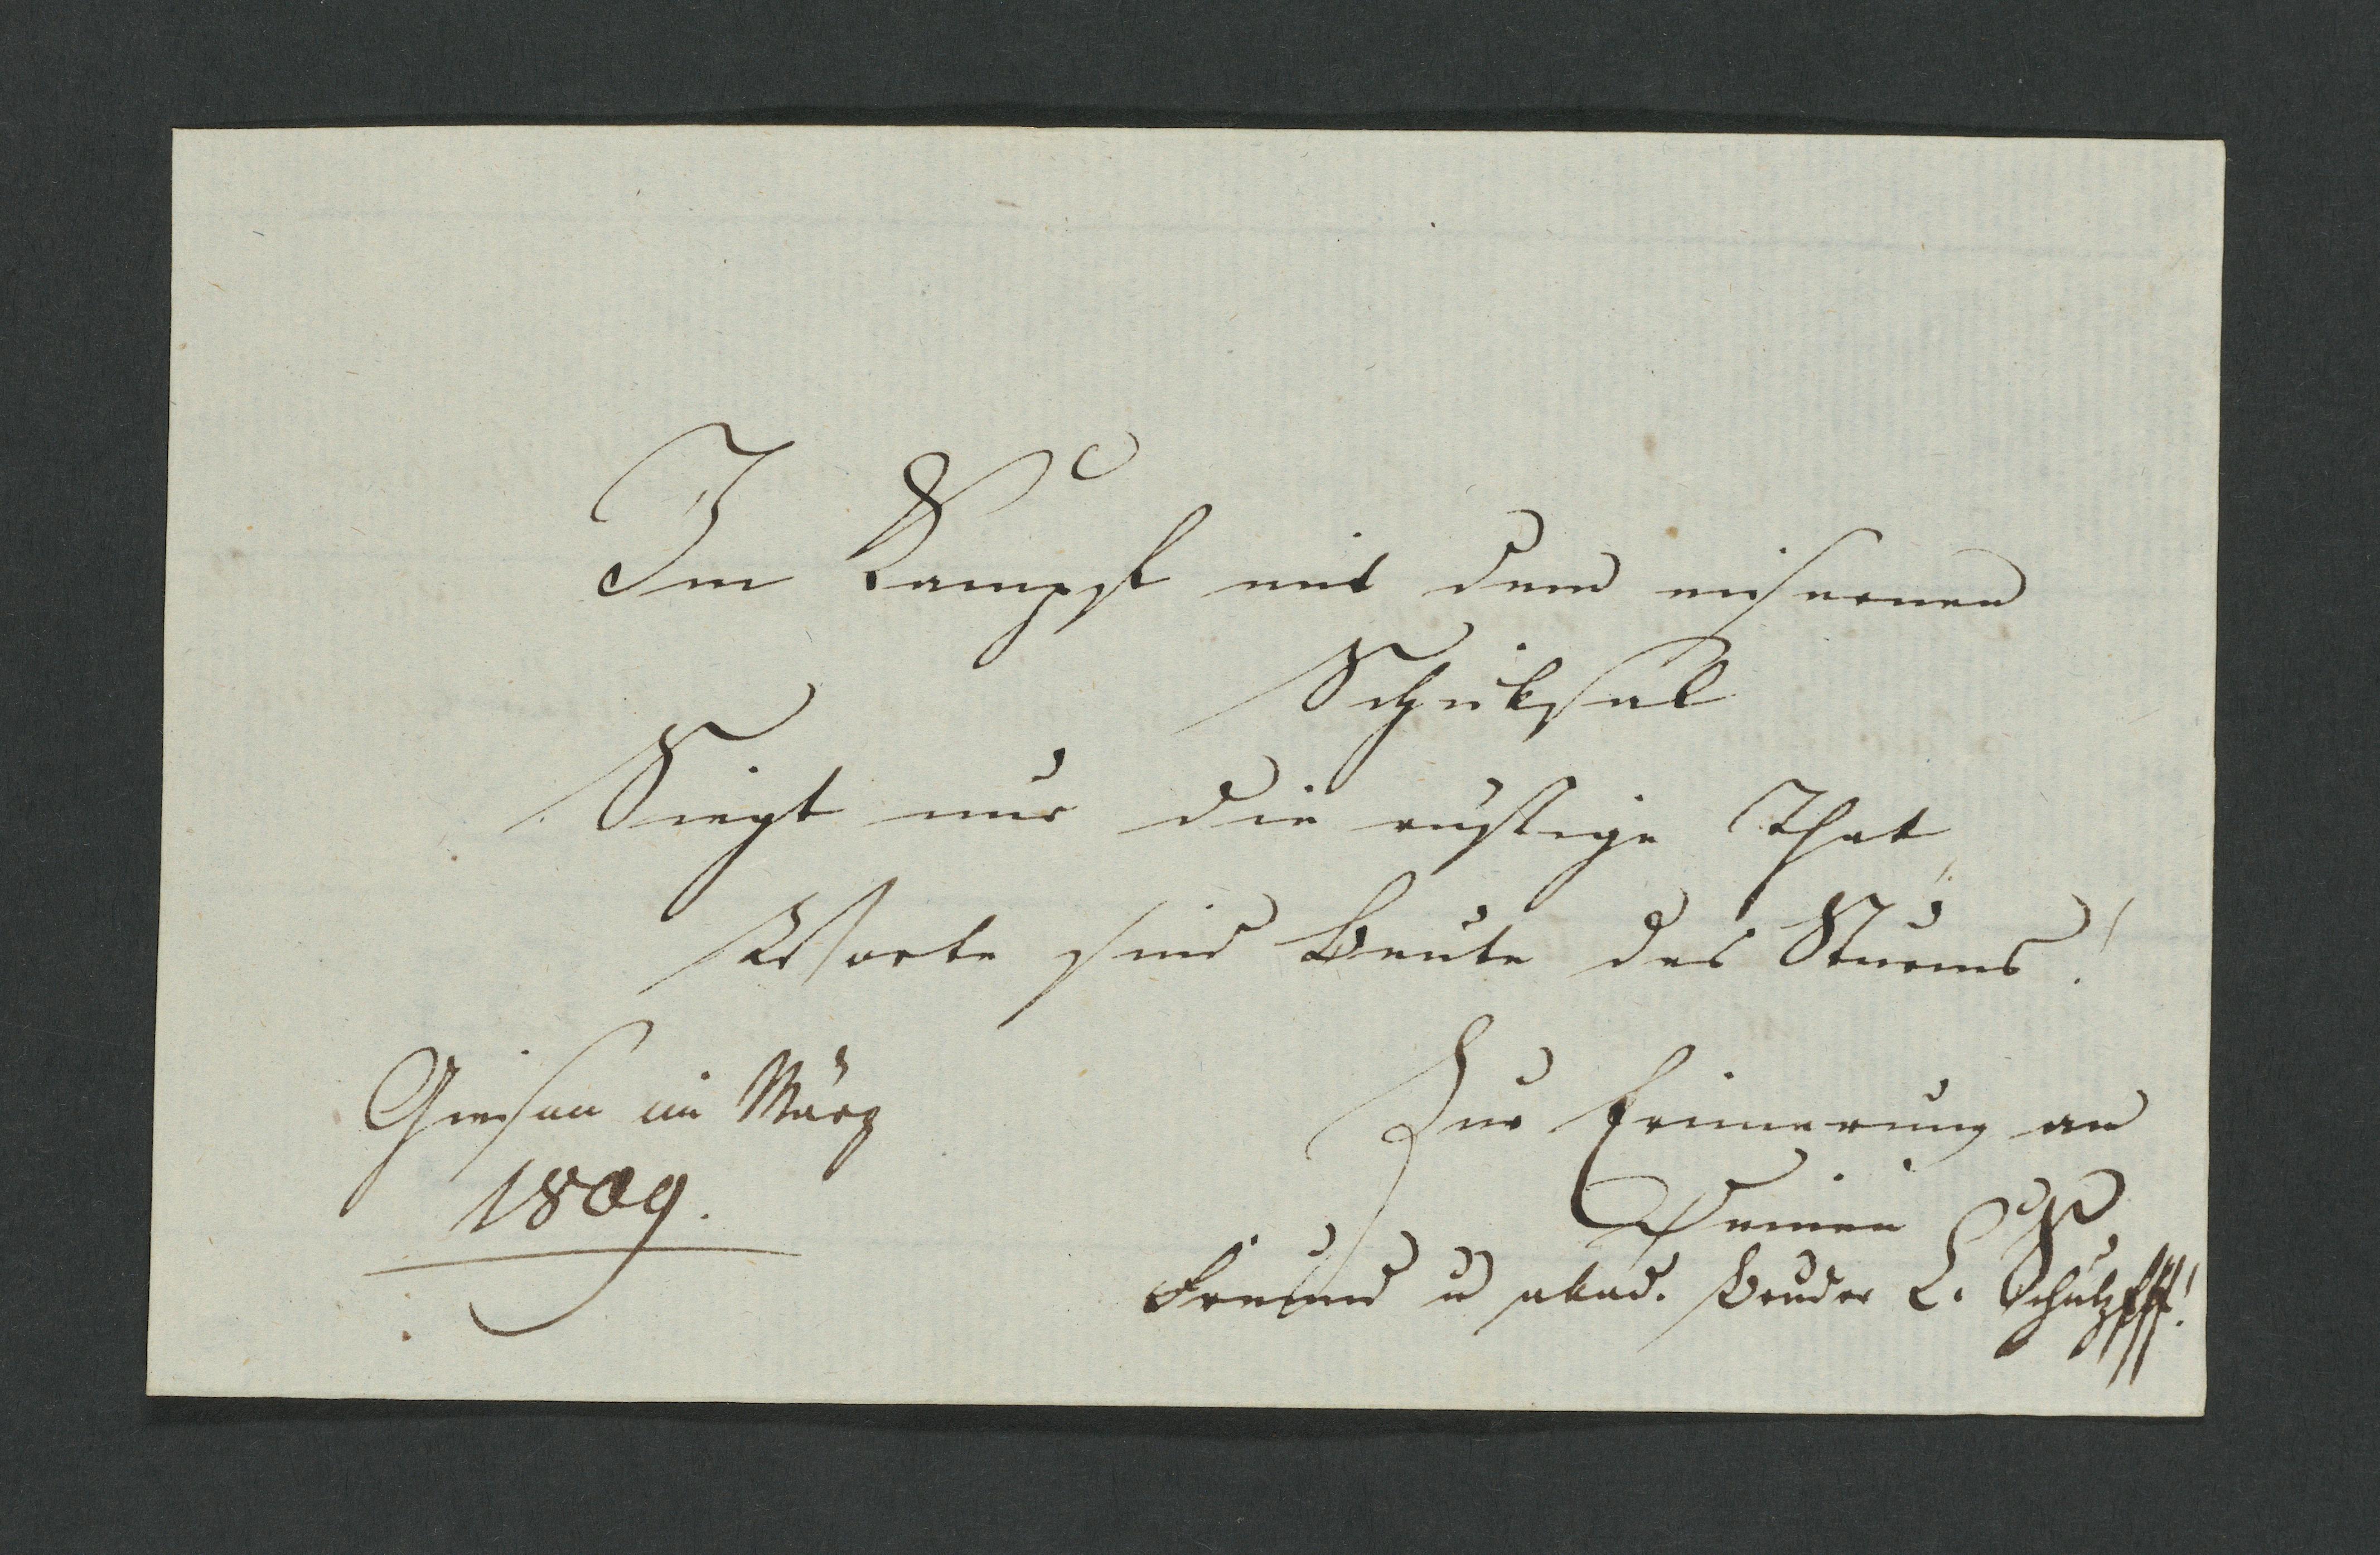 Im Kampf mit dem eisernen
Schiksal
Siegt nur die rüstige That,
Worte sind Beute des Sturms!
Giesen im März
1809.
Zur Erinnerung an
Deinen
Freund u akad. Bruder L. Schulz